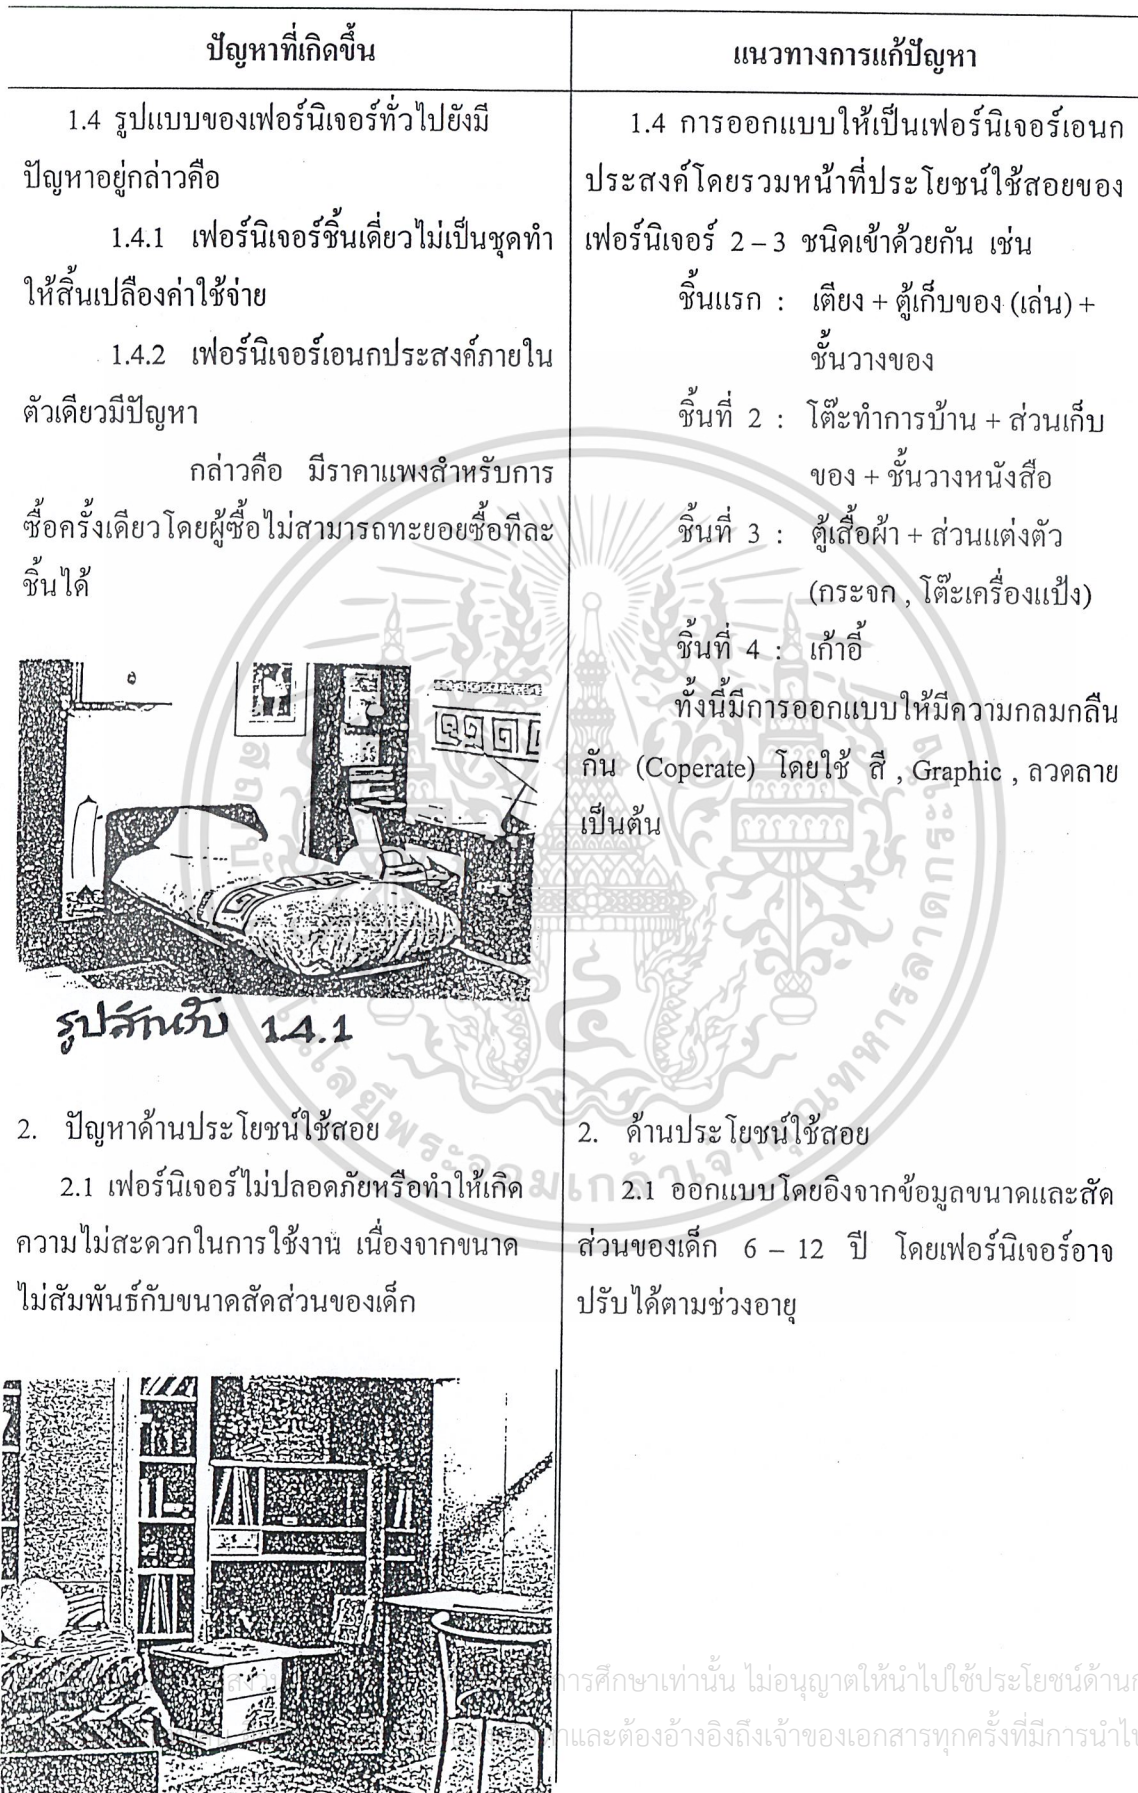 ปัญหาที่เกิดขึ้น
แนวทางการแก้ปัญหา
1.4 รูปแบบของเฟอร์นิเจอร์ทั่วไปยังมี
ปัญหาอยู่กล่าวคือ
1.4.1 เฟอร์นิเจอร์ชิ้นเดี่ยวไม่เป็นชุดทำ
ให้สิ้นเปลืองค่าใช้จ่าย
1.4.2 เฟอร์นิเจอร์เอนกประสงค์ภายใน
ตัวเดียวมีปัญหา
กล่าวคือ มีราคาแพงสำหรับการ
ซื้อครั้งเดียวโดยผู้ซื้อไม่สามารถทะยอยซื้อทีละ
ชิ้นได้
รูปสำหรับ 1.4.1
2. ปัญหาด้านประโยชน์ใช้สอย
2.1 เฟอร์นิเจอร์ไม่ปลอดภัยหรือทำให้เกิด
ความไม่สะดวกในการใช้งาน เนื่องจากขนาด
ไม่สัมพันธ์กับขนาดสัดส่วนของเด็ก
1.4 การออกแบบให้เป็นเฟอร์นิเจอร์เอนก
ประสงค์โดยรวมหน้าที่ประโยชน์ใช้สอยของ
เฟอร์นิเจอร์ 2 – 3 ชนิดเข้าด้วยกัน เช่น
ชิ้นแรก : เตียง + ตู้เก็บของ (เล่น) +
ชั้นวางของ
ชิ้นที่ 2 : โต๊ะทำการบ้าน + ส่วนเก็บ
ของ + ชั้นวางหนังสือ
ชิ้นที่ 3 : ตู้เสื้อผ้า + ส่วนแต่งตัว
(กระจก , โต๊ะเครื่องแป้ง)
ชิ้นที่ 4 : เก้าอี้
ทั้งนี้มีการออกแบบให้มีความกลมกลืน
กัน (Coperate) โดยใช้ สี , Graphic , ลวดลาย
เป็นต้น
2. ด้านประโยชน์ใช้สอย
2.1 ออกแบบโดยอิงจากข้อมูลขนาดและสัด
ส่วนของเด็ก 6 – 12 ปี โดยเฟอร์นิเจอร์อาจ
ปรับได้ตามช่วงอายุ
การศึกษาเท่านั้น ไม่อนุญาตให้นำไปใช้ประโยชน์ด้าน
และต้องอ้างอิงถึงเจ้าของเอกสารทุกครั้งที่มีการนำไป